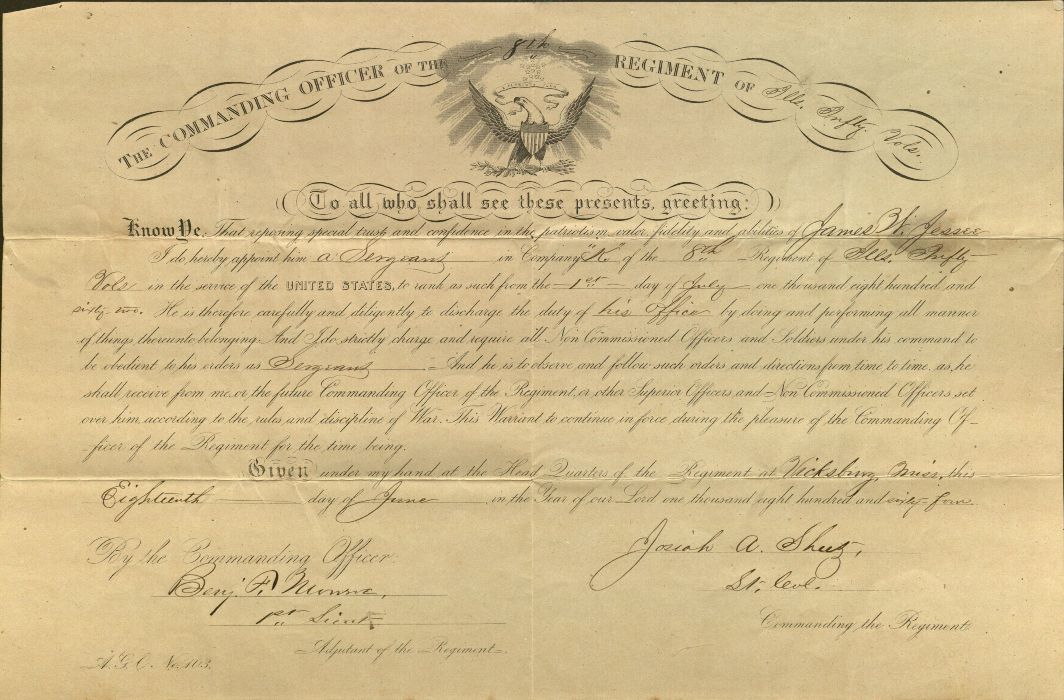 THE COMMANDING OFFICER OF THE 8th REGIMENT OF Ills. Infty. Vols.
To all who shall see these presents, greeting:
Know Ye, That reposing special trust and confidence in the patriotism, valor, fidelity and abilities of James W. Jessee
I do hereby appoint him a Sergeant in Company "K." of the 8th Regiment of Ills. Infty
Vols in the service of the UNITED STATES, to rank as such from the 1st day of July one thousand eight hundred and
sixty-two. He is therefore carefully and diligently to discharge the duty of his Office by doing and performing all manner
of things thereunto belonging. And I do strictly charge and require all Non Commissioned Officers and Soldiers under his command to
be obedient to his orders as Sergeant And he is to observe and follow such orders and directions from time to time, as he
shall receive from me, or the future Commanding Officer of the Regiment, or other Superior Officers and Non Commissioned Officers, set
over him, according to the rules and discipline of War. This Warrant to continue in force during the pleasure of the Commanding Of-
-ficer of the Regiment for the time being.
Given under my hand at the Head Quarters of the Regiment at Vicksburg, Miss, this
Eighteenth day of June in the Year of our Lord one thousand eight hundred and sixty-four
By the Commanding Officer:
Josiah A. Sheetz,
Benj. F. Monroe,
Lt. Col.
1st Lieut,
Commanding the Regiment.
Adjutant of the Regiment.
A.G.O. No. 103.